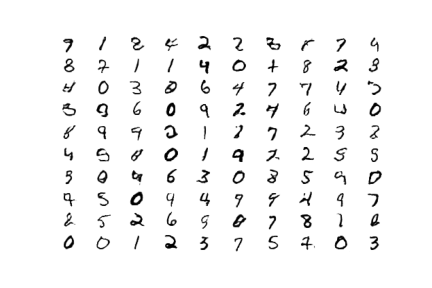 7 1 2 4 2 2 3 7 9
8 7 1 1 4 0 + 8 2 3
4 0 3 8 6 4 7 7 4 5
3 9 6 0 9 2 4 6 0
8 9 9 2 1 1 7 2 3 2
4 5 8 0 1 9 2 2 5 5
5 0 9 6 3 0 8 5 9 0
9 5 0 4 4 9 9 4 9 7
2 5 2 6 9 0 7 8 1
0 0 1 2 3 7 5 7 0 3